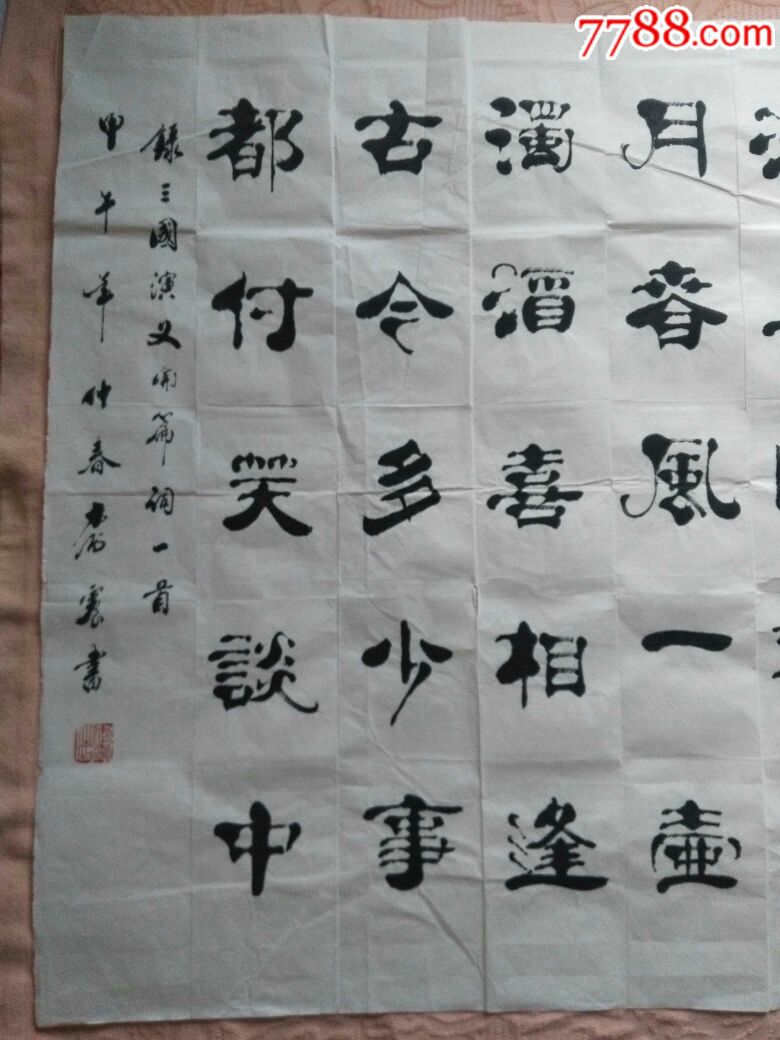 7788.com
月春風一壺
濁酒喜相逢
古今多少事
都付笑談中
錄三國演义開篇詞一首
甲午年仲春
書